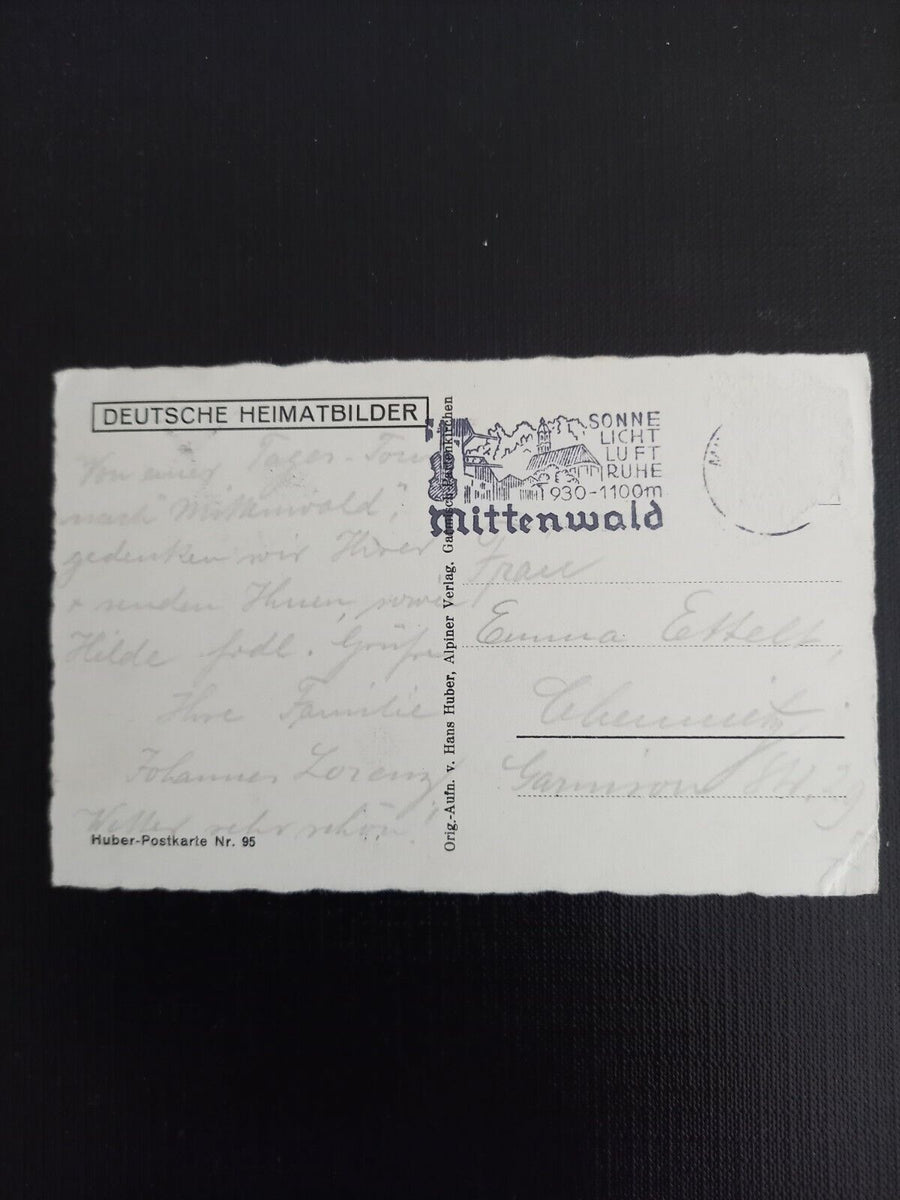 DEUTSCHE HEIMATBILDER
Von einer Tages-Tour
nach "Mittenwald",
gedenken wir Ihrer
+ senden Ihnen sowie
Hilde frdl. Grüße
Ihre Familie
Johannes Lorenz
Wetter sehr schön!
Huber-Postkarte Nr. 95
Orig.-Aufn. v. Hans Huber, Alpiner Verlag. Garmisch-Partenkirchen
SONNE
LICHT
LUFT
RUHE
930-1100m
Mittenwald
Frau
Emma
Chemnitz
Garnison